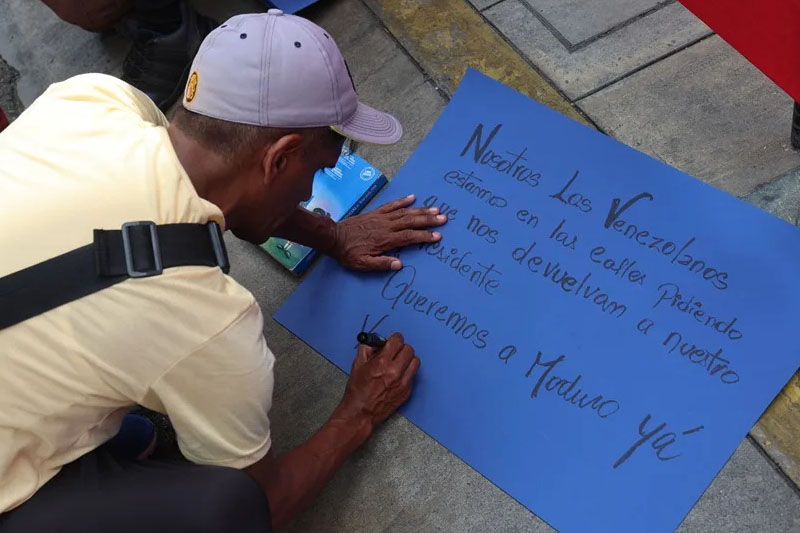 Nosotros Los Venezolanos
estamos en las calles Pidiendo
que nos devuelvan a nuestro
Presidente
Queremos a Maduro Yá
V